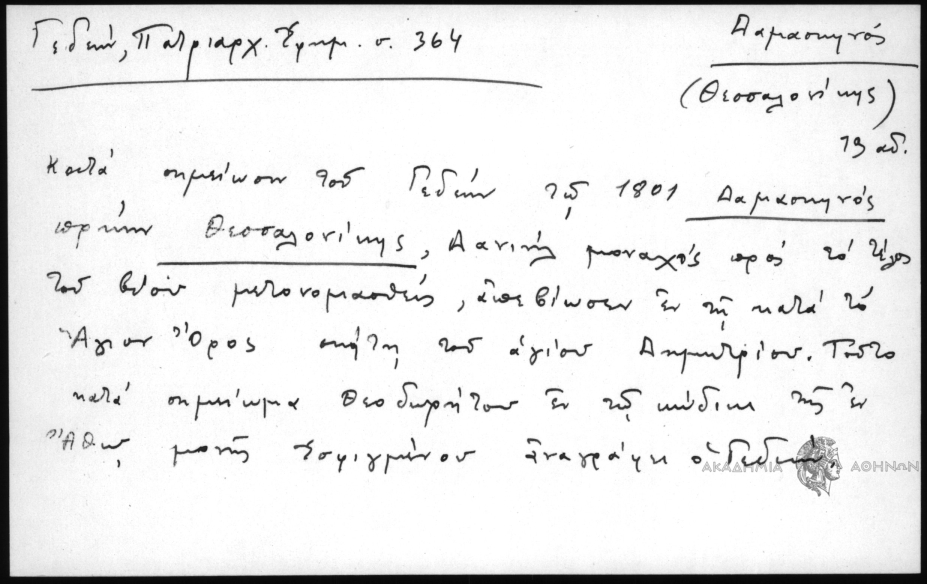 Γεδεών, Πατριαρχ. Ἐφημ. σ. 364
Δαμασκηνός
(Θεσσαλονίκης)
19 αἰ.
Κατά σημείωσιν τοῦ Γεδεών τῷ 1801 Δαμασκηνός
πρώην Θεσσαλονίκης, Δανιήλ μοναχός πρός τό τέλος
τοῦ βίου μετονομασθείς, ἀπεβίωσεν ἐν τῇ κατά τό
Ἅγιον Ὄρος σκήτῃ τοῦ ἁγίου Δημητρίου. Τοῦτο
κατά σημείωμα Θεοδωρήτου ἐν τῷ κώδικι τῆς ἐν
Ἄθῳ μονῆς Ἐσφιγμένου ἀναγράφει ὁ Γεδεών.
ΑΚΑΔΗΜΙΑ ΑΘΗΝΩΝ